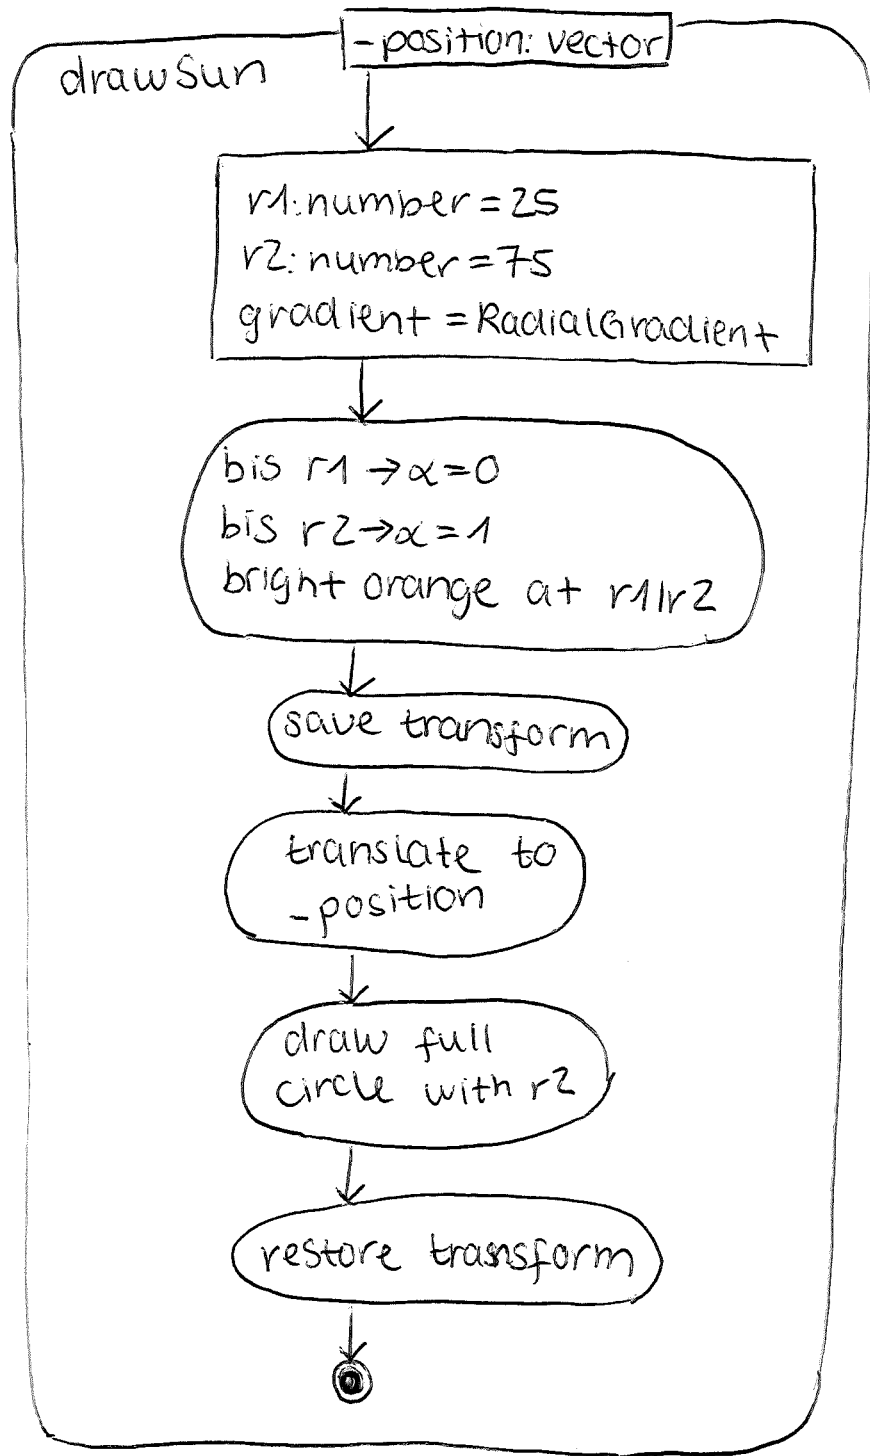 -position: vector
drawSun
r1:number=25
r2: number=75
gradient = RadialGradient
bis r1 → α=0
bis r2→α=1
bright orange at r1/r2
save transform
translate to
-position
draw full
circle with r2
restore transform